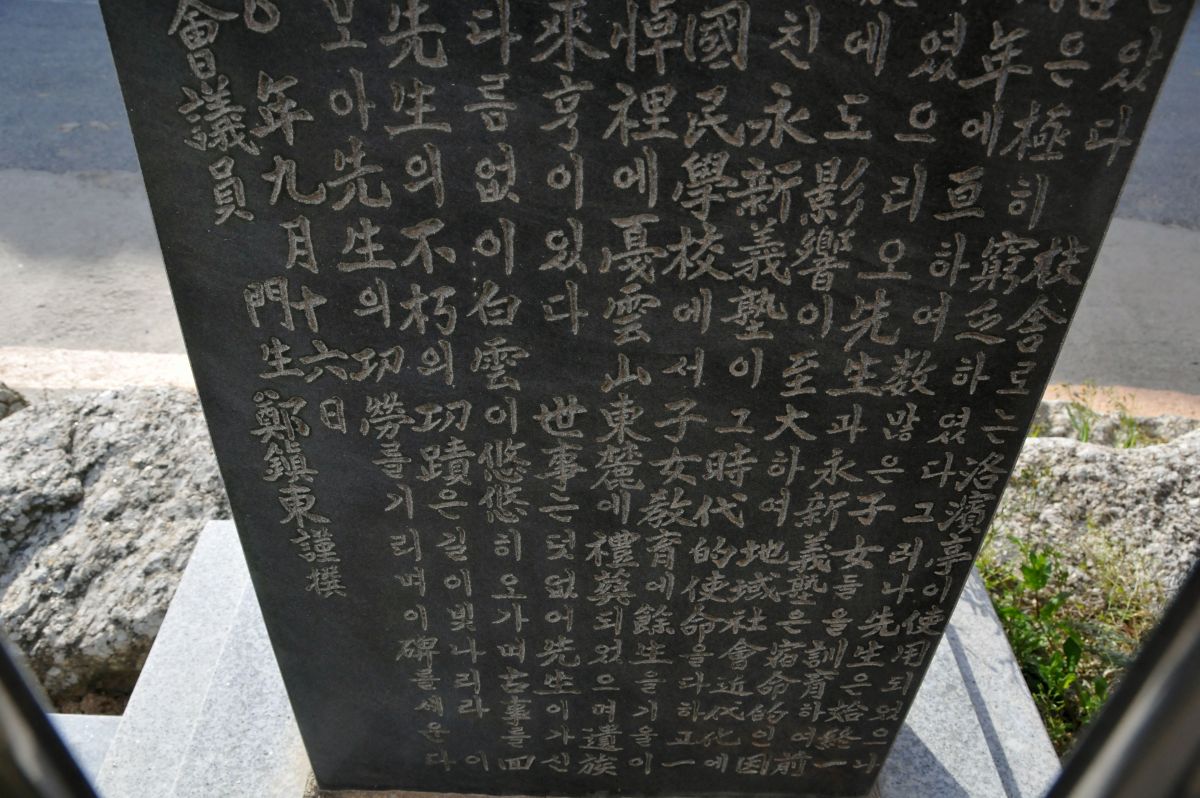 았다 校舍로는 洛濱亭이 使用되었으나
은 極히 窮乏하였다 그러나 先生은 始終一
年에 亘하여 数많은 子女들을 訓育하여 前
였으리오 先生과 永新義塾은 宿命的인 因
에도 影響이 至大하여 地域社會 近代化에
친 永新義塾이 그 時代的 使命을 다하고 一
國民學校에서 子女敎育에 餘生을 기울이
悼裡에 戞雲山 東麓에 禮葬되었으며 遺族
來亨이 있다 世事는 덧없어 先生이 가신
다름없이 白雲이 悠悠히 오가며 古事를 回
先生의 不朽의 功蹟은 길이 빛나리라 이
모아 先生의 功勞를 기리며 이 碑를 세운다
年九月十六日
會議員 門生 鄭鎭東 謹撰